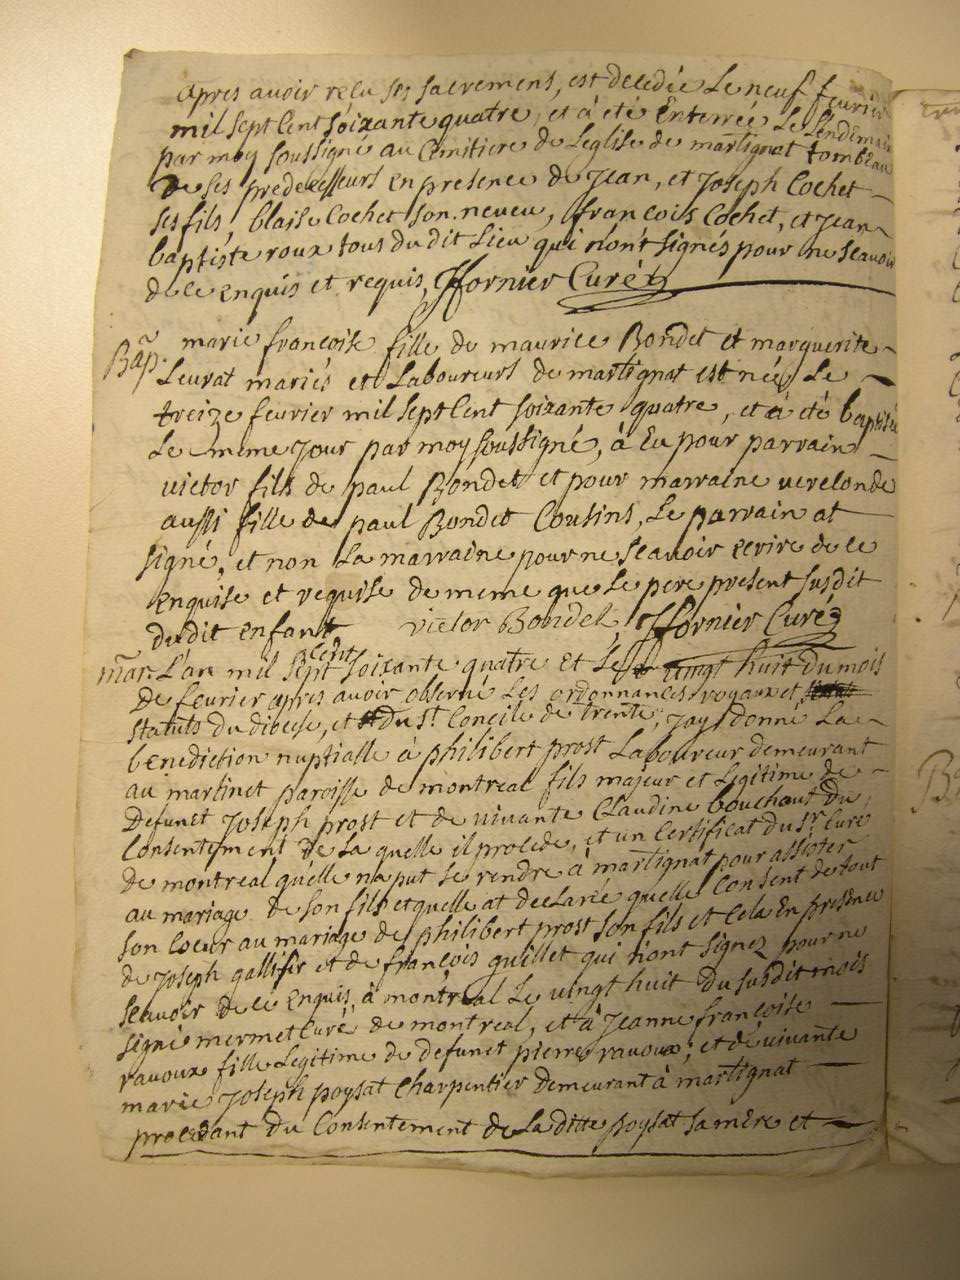 apres avoir reçu ses sacremens, est decedée Le neuf fevrier
mil sept Cent soixante quatre, et à eté Enterrée Le Lendemain
par moy soussigné au Cemitiere de Leglise de martignat tombeau
de ses predecesseurs en presence de Jean, et Joseph Cochet
ses fils, blaise Cochet son neveu, françois Cochet, et Jean
baptiste roux tous du dit Lieu qui n'ont signés pour ne sçavoir
de ce enquis et requis, Ffornier Curé
Bap. marie françoise fille de maurice Bondet et marguerite
Levrat mariés et Laboureurs de martignat est née Le
treize fevrier mil sept Cent soixante quatre, et à eté baptisée
Le meme Jour par moy soussigné, à Eu pour parrain
victor fils de paul Bondet et pour marraine verelonde
aussi fille de paul Bondet Cousins, Le parrain at
signé, et non La marraine pour ne sçavoir ecrire de ce
enquise et requise de meme que Le pere present susdit
du dit enfant, victor Bondet, Ffornier Curé
mar. L'an mil sept Cent soixante quatre et Le vingt huit du mois
de fevrier apres avoir observé Les ordonnances royaux et
statuts du diocese, et du st Concile de trente, Jay donné La
benediction nuptialle à philibert prost Laboureur demeurant
au martinet paroisse de montreal fils majeur et Legitime de
defunct Joseph prost et de vivante Claudine bouchaut du
Consentement de La quelle il procede, et un Certificat du Sr Curé
de montreal qu'elle na put se rendre à martignat pour assister
au mariage de son fils et quelle at declaré quelle Consent de tout
son Coeur au mariage de philibert prost son fils et Cela En presence
de Joseph gallifir et de françois guillet qui n'ont signez pour ne
sçavoir de ce enquis, à montreal Le vingt huit du susdit mois
signé mermet Curé de montreal, et à Jeanne françoise
ravoux fille Legitime de defunct pierre ravoux, et de vivante
marie Joseph poysat Charpentier demeurant à martignat
procedant du Consentement de La ditte poysat sa mere et